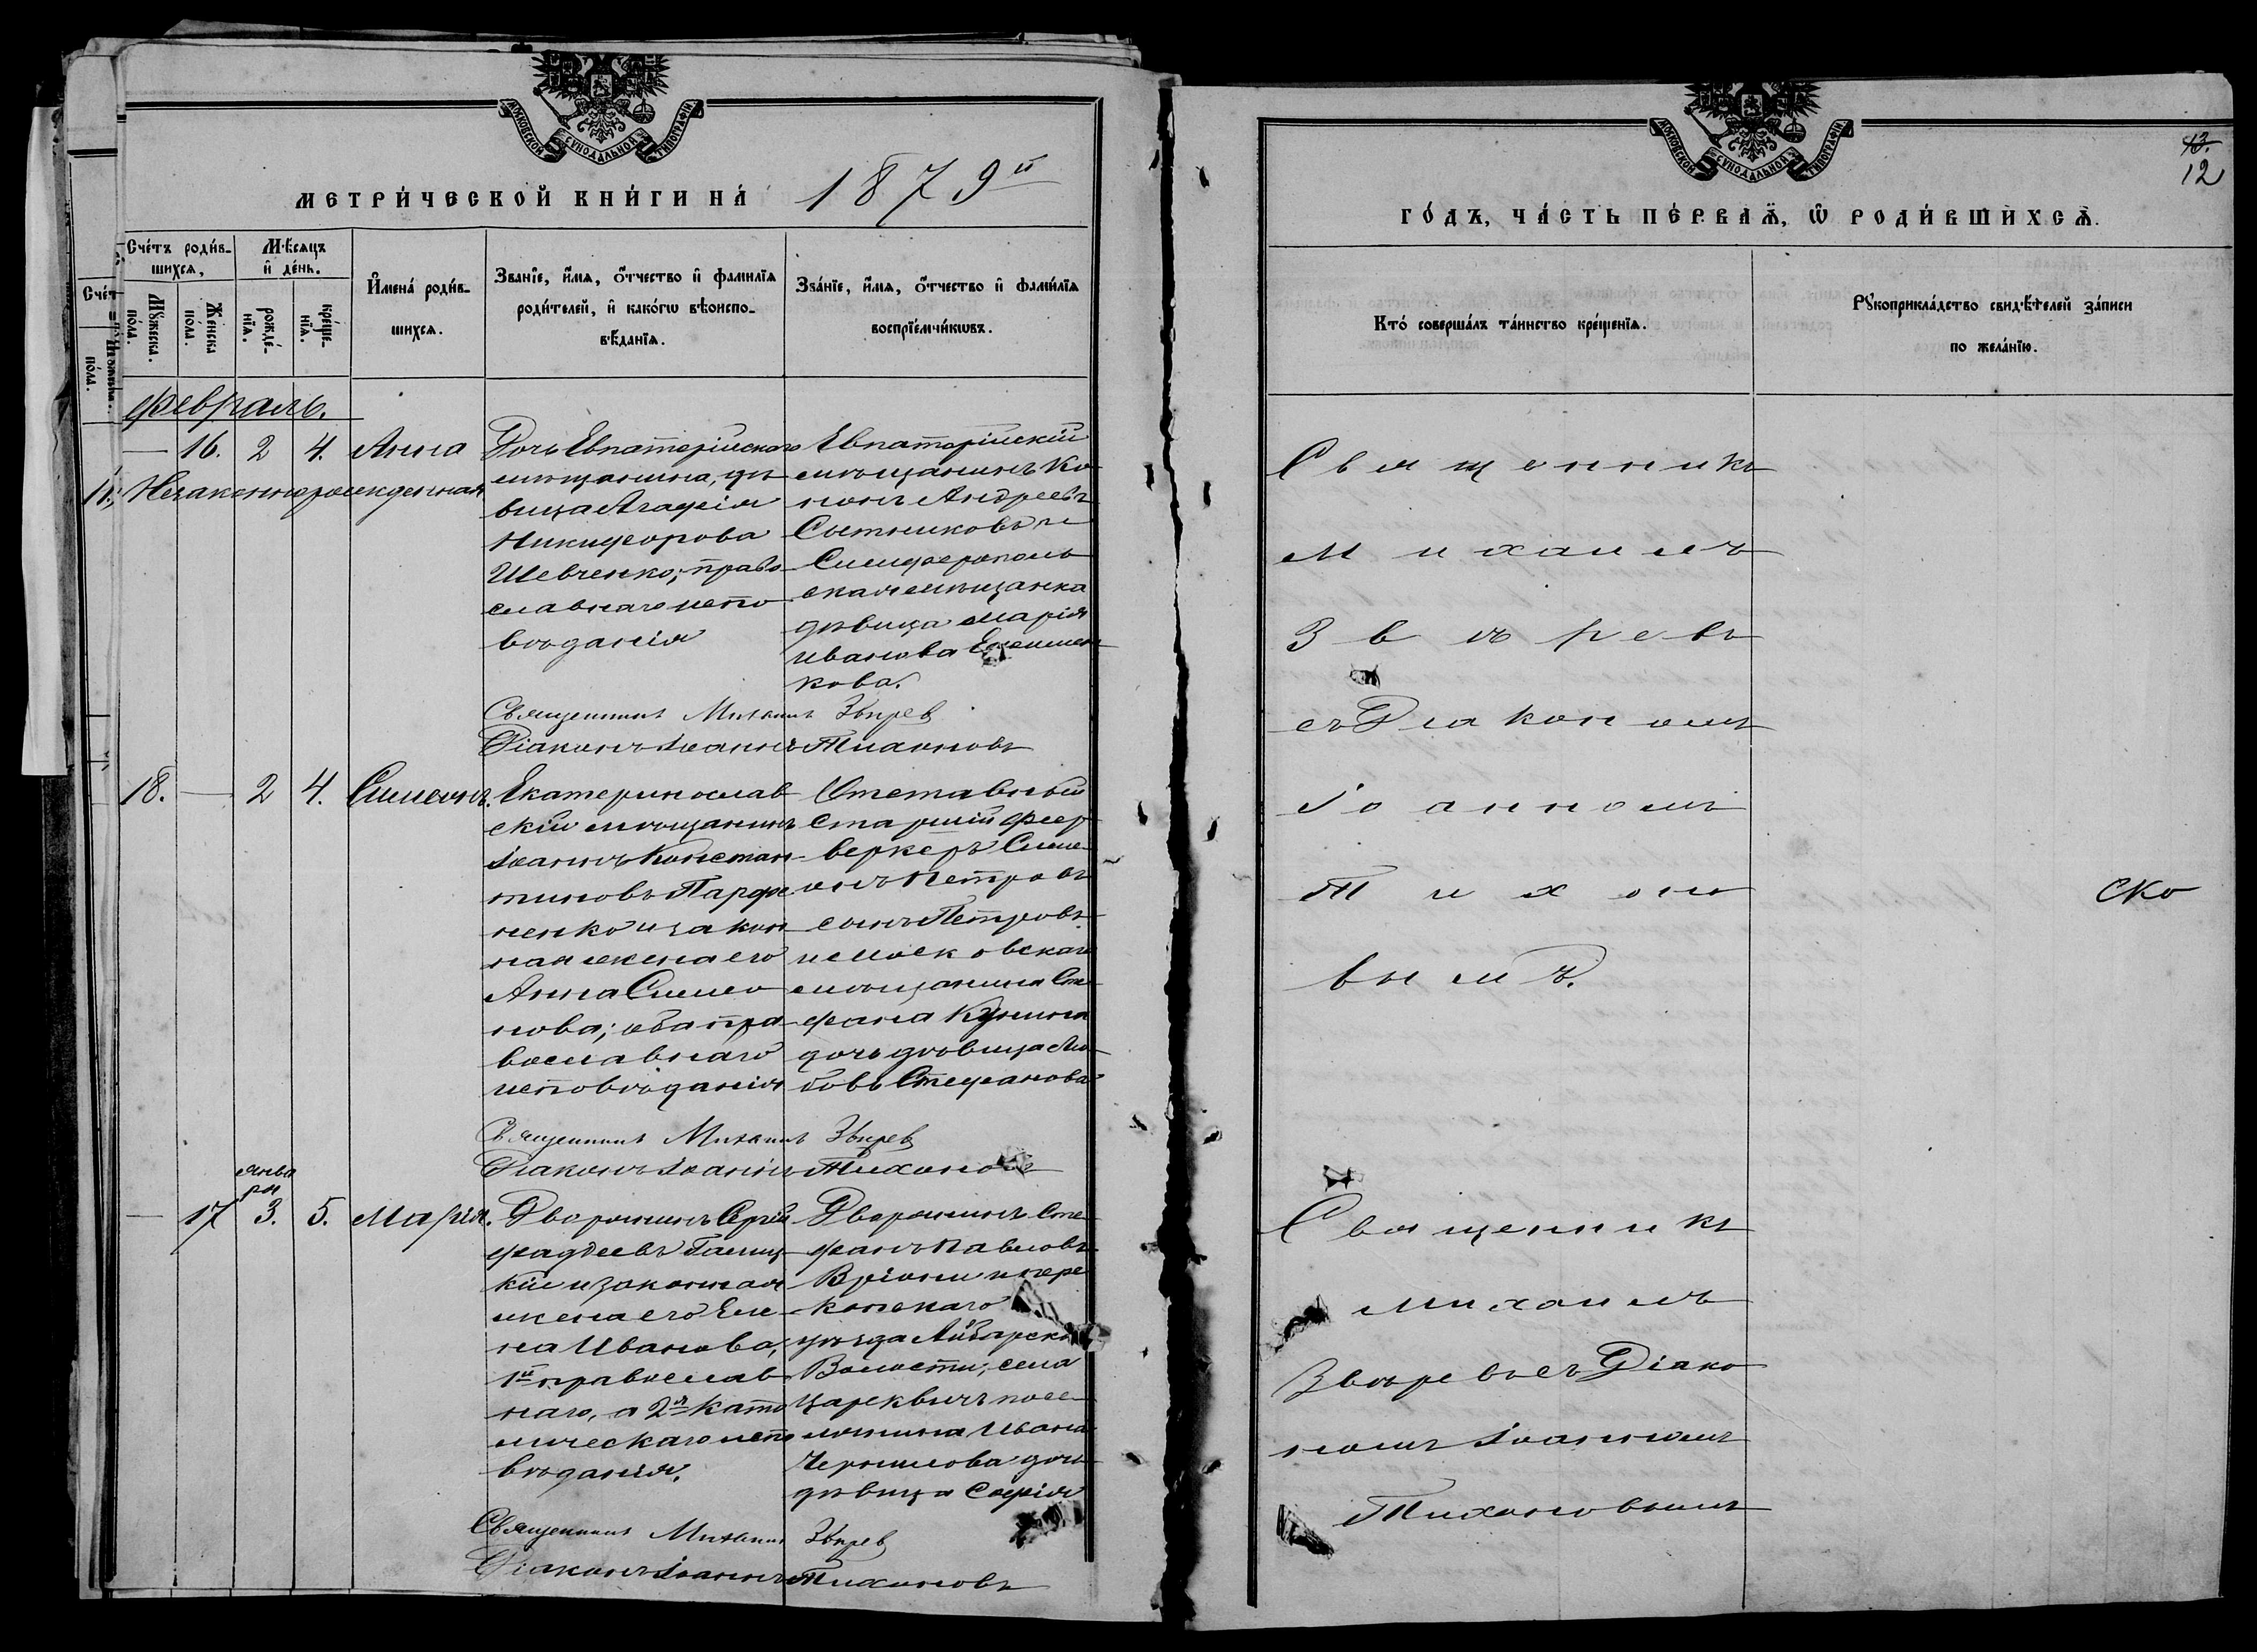 МОСКОВСКОЙ СѴНОДАЛЬНОЙ ТИПОГРАФІИ
МЕТРИ́ЧЕСКОЙ КНИ́ГИ НА́ 1879й
Сче́тъ роди́вшихся,
Мѣсяцъ и де́нь.
Мꙋжеска по́ла.
Же́нска по́ла.
рожде́нїѧ.
креще́нїѧ.
И҆мена̀ роди́вшихсѧ.
Зва́нїе, и҆́мѧ, ѻ҆́тчество и҆ фамилїѧ
роди́телей, и҆ како́гѡ вѣ́роиспо-
вѣ́данїѧ.
Зва́нїе, и҆́мѧ, ѻ҆́тчество и҆ фами́лїѧ
воспрїе́мчикѡвъ.
Февраль.
— 16. 2 4. Анна
Незаконнорожденная
Дочь Евпаторійскаго
мѣщанина, дѣ
вица Агафія
Никифорова
Шевченко; право
славнаго испо
вѣданія
Евпаторійскій
мѣщанинъ Ко
нонъ Андреевъ
Сытниковъ и
Симферополь
ская мѣщанка
дѣвица Марія
Иванова
кова.
Священникъ Михаилъ Звѣрев
Діаконъ Іоаннъ Тихоновъ
18. — 2 4. Симеонъ.
Екатеринослав
скій мѣщанинъ
Іоаннъ Констан
тиновъ Парфе
ненко и закон
ная жена его
Анна Симео
нова; оба пра
вославнаго
исповѣданія
Отставный
старшій феер
веркеръ Симе
онъ Петровъ
сынъ Петровъ
и Московскаго
мѣщанина Сте
фана Кузмина
дочь дѣвица Лю
бовь Стефанова
Священникъ Михаилъ Звѣрев
Діаконъ Іоаннъ Тихоновъ
— 17 января 3. 5. Марія.
Дворянинъ Сергій
Фадеевъ
кій и законная
жена его Еле
на Иванова,
1й православ
наго, а 2я като
лическаго испо
вѣданія.
Дворянинъ Сте
фанъ Павловъ
и пере
копскаго
уѣзда Айбарской
Волости, села
Цареквичъ посе
лянина Ивана
дочь
дѣвица Софія
Священникъ Михаилъ Звѣрев
Діаконъ Іоаннъ Тихоновъ
МОСКОВСКОЙ СѴНОДАЛЬНОЙ ТИПОГРАФІИ
13.
12
ГО́ДЪ, ЧА́СТЬ ПЕ́РВАѦ, Ѡ҆ РОДИ́ВШИХСѦ.
Кто̀ соверша́лъ та́инство креще́нїѧ.
Рꙋкоприкла́дство свидѣ́телей за́писи
по жела́нїю.
Священникъ
Михаилъ
Звѣревъ
съ Діакономъ
Іоанномъ
Тихоно
вымъ.
ско
Священникъ
Михаилъ
Звѣревъ съ Діако
номъ Іоанномъ
Тихоновымъ